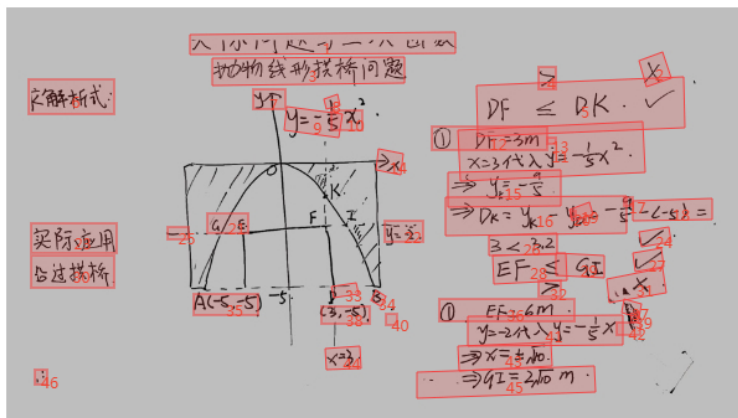 抛物线形拱桥问题
求解析式:
y
y=-1/5x²
x
O
K
G E F I
y=-2
实际应用
能否过拱桥.
A(-5,-5) -5 D B
(3,-5)
x=3
> ×
DF ≤ DK. ✓
① DF=3m
x=3代入y=-1/5x².
⇒ yk=-9/5
⇒ DK=yK-yD=-9/5-(-5)=
3<3.2 ✓
EF ≤ GI ✓
> ×
① EF=6m
y=-2代入y=-1/5x
⇒ x=±√10.
⇒ GI=2√10 m.